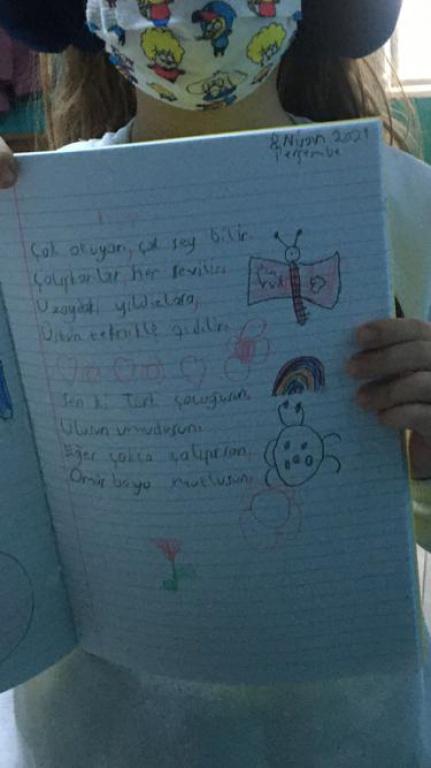 8 Nisan 2021
Perşembe
Çok okuyan, çok şey bilir.
Çalışkanlar her sevilir.
Uzaydaki yıldızlara,
Üstün teknikle gidilir.
Sen ki Türk çocuğusun,
Ulusun umudusun.
Eğer çokça çalışırsan,
Ömür boyu mutlusun.